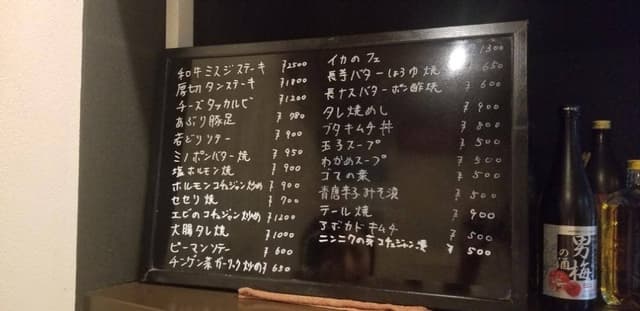 和牛ミスジステーキ ¥2500
厚切タンステーキ ¥1800
チーズタッカルビ ¥1200
あぶり豚足 ¥980
若どりソテー ¥900
ミノポンバター焼 ¥950
塩ホルモン焼 ¥900
ホルモンコチュジャン炒め ¥900
セセリ焼 ¥700
エビのコチュジャン炒め ¥1200
大腸タレ焼 ¥1000
ピーマンソテー ¥600
チンゲン菜ガーリック炒め ¥650
イカのフェ ¥1300
長芋バターしょうゆ焼 ¥650
長ナスバターポン酢焼 ¥600
タレ焼めし ¥900
ブタキムチ丼 ¥800
玉子スープ ¥500
わかめスープ ¥500
ゴマの葉 ¥500
青唐辛子みそ漬 ¥500
テール焼 ¥900
アボカドキムチ ¥500
ニンニクの芽コチュジャン漬 ¥500
男梅
の酒